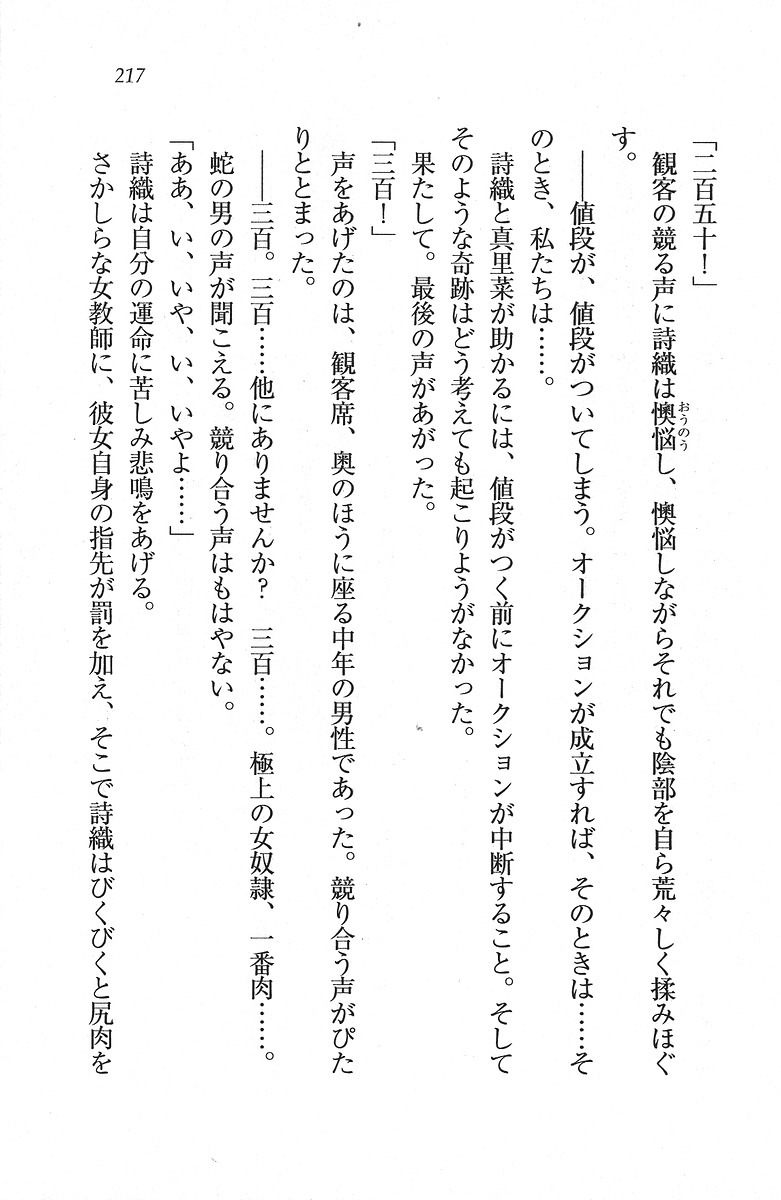 217
「二百五十！」
観客の競る声に詩織は懊悩し、懊悩しながらそれでも陰部を自ら荒々しく揉みほぐ
おうのう
す。
――値段が、値段がついてしまう。オークションが成立すれば、そのときは……そ
のとき、私たちは……。
詩織と真里菜が助かるには、値段がつく前にオークションが中断すること。そして
そのような奇跡はどう考えても起こりようがなかった。
果たして。最後の声があがった。
「三百！」
声をあげたのは、観客席、奥のほうに座る中年の男性であった。競り合う声がぴた
りととまった。
――三百。三百……他にありませんか？　三百……。極上の女奴隷、一番肉……。
蛇の男の声が聞こえる。競り合う声はもはやない。
「ああ、い、いや、い、いやよ……」
詩織は自分の運命に苦しみ悲鳴をあげる。
さかしらな女教師に、彼女自身の指先が罰を加え、そこで詩織はびくびくと尻肉を